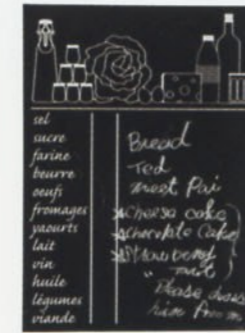 sel
sucre
farine
beurre
oeufs
fromages
yaourts
lait
vin
huile
légumes
viande
Bread
Ted
meet Pai
cheese cake
chocolate cake
Please
him from